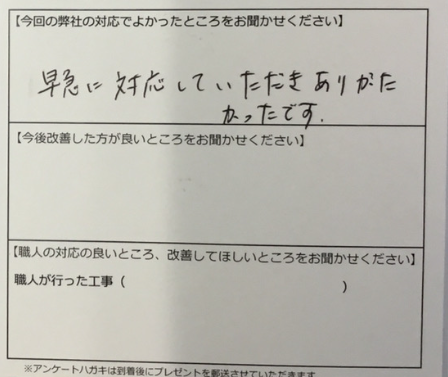 【今回の弊社の対応でよかったところをお聞かせください】
早急に対応していただきありがた
かったです.
【今後改善した方が良いところをお聞かせください】
【職人の対応の良いところ、改善してほしいところをお聞かせください】
職人が行った工事（　　　　　　　　　　　　　　　　　）
※アンケートハガキは到着後にプレゼントを郵送させていただきます